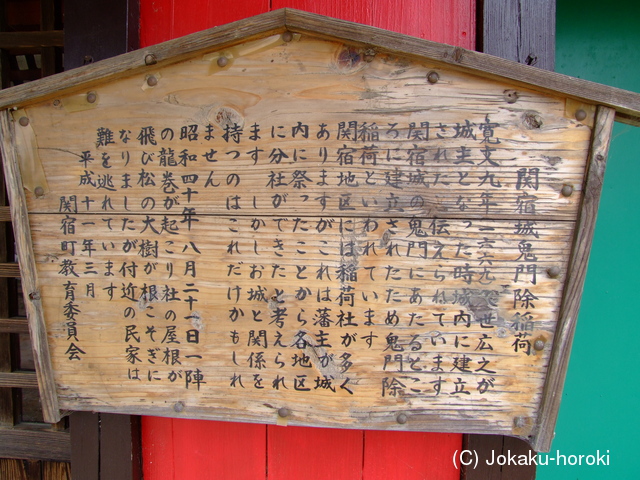 関宿城鬼門除稲荷
寛文九年一六六九久世広之が
城主となった時城内に建立
されたと伝えられています
関宿城の鬼門にあたるとこ
ろに建立されたため鬼門除
稲荷といわれています
関宿地区には稲荷社が多く
ありますがこれは藩主が城
内に祭ったことから各地区
に分社ができたと考えられ
ます しかしお城と関係を
持つのはこれだけかもしれ
ません
昭和四十年八月二十一日一陣
の龍巻が起こり社の屋根が
飛び松の大樹が根こそぎに
なりましたが付近の民家は
難を逃れています
平成十一年三月
関宿町教育委員会
(C) Jokaku-horoki